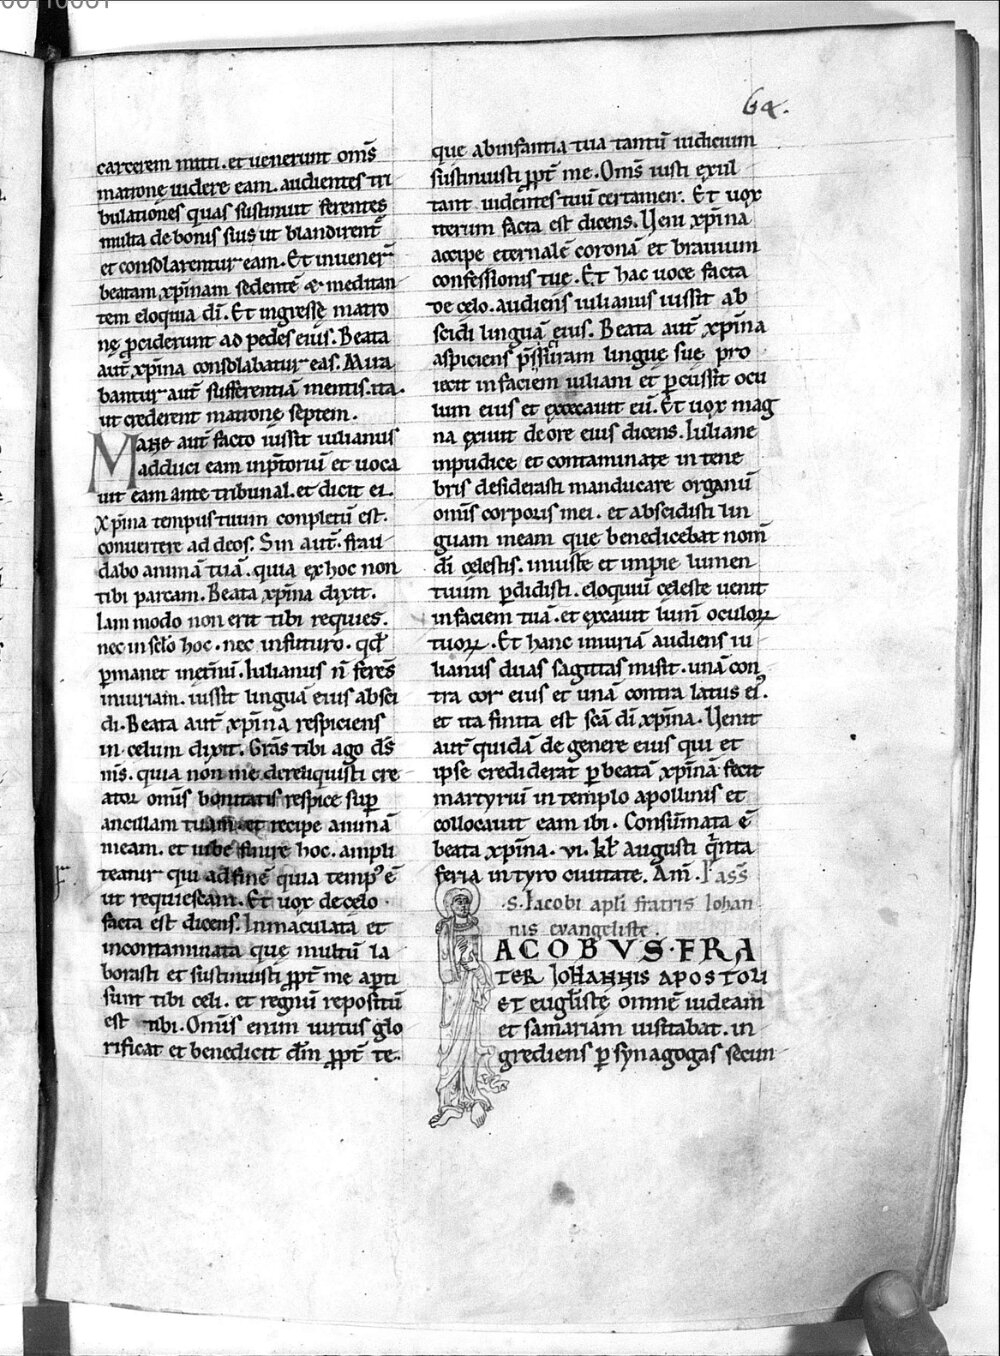 64.
carcerem mitti. et uenerunt om̄s
matronę uidere eam. audientes tri
bulationes quas sustinuit ferentes
multa de bonis suis ut blandirent᷑
et consolarentur eam. Et inuener̄
beatam xp̄inam sedentē & meditan
tem eloquia dī. Et ingressę matro
nę ꝓciderunt ad pedes eius. Beata
aut̄ xp̄ina consolabatur eas. Mira
bantur aut̄ sufferentiā mentis. ita.
ut crederent matronę septem.
Mane aut̄ facto iussit iulianus
adduci eam inp̄toriū et uoca
uit eam ante tribunal. et dicit ei.
Xp̄ina tempus tuum conpletū est.
conuertere ad deos. Sin aut̄. frau
dabo animā tuā. quia ex hoc non
tibi parcam. Beata xp̄ina dixit.
Iam modo non erit tibi requies.
nec in sc̄lo hoc. nec in futuro. qd̄
ꝑmanet inęt̄nū. Iulianus n̄ ferēs
iniuriam. iussit linguā eius absci
di. Beata aut̄ xp̄ina respiciens
in celum dixit. Gr̄as tibi ago dꝰs
m̄s. quia non me dereliquisti cre
ator om̄is bonitatis respice sup̄
ancillam tuam. et recipe animā
meam. et iube finire hoc. ampli
teatur qui ad finē quia temp᷒ ē
ut requiescam. Et uox de celo
facta est dicens. Inmaculata et
incontaminata que multū la
borasti et sustinuisti ꝓpt̄ me apti
sunt tibi celi. et regnū repositū
est tibi. Om̄is enim uirtus glo
rificat et benedicit dn̄m ꝓpt̄ te.
que abinfantia tua tantū iudicium
sustinuisti ꝓpt̄ me. Om̄s iusti exul
tant uidentes tuū certamen. Et uox
iterum facta est dicens. Ueni xp̄ina
accipe eternalē coronā et brauium
confessionis tuę. Et hac uoce facta
de cęlo. audiens iulianus iussit ab
scidi linguā eius. Beata aut̄ xp̄ina
aspiciens p̄ssuram linguę suę pro
iecit in faciem iuliani et ꝑcussit ocu
lum eius et excecauit eū. Et uox mag
na exiuit de ore eius dicens. Iuliane
inpudice et contaminate in tene
bris desiderasti manducare organū
om̄is corporis mei. et abscidisti lin
guam meam que benedicebat nom̄
dī cęlestis. iniuste et impie lumen
tuum ꝑdidisti. eloquiū cęleste uenit
in faciem tuā. et excauit lum̄ oculoꝝ
tuoꝝ. Et hanc iniuriā audiens iu
lianus duas sagittas misit. unā con
tra cor eius et unā contra latus ei᷒.
et ita finita est sc̄a dī xp̄ina. Uenit
aut̄ quidā de genere eius qui et
ipse crediderat ꝑ beatā xp̄inā fecit
martyriū in templo apollinis et
collocauit eam ibi. Consūmata ē
beata xp̄ina. vi. kl̄ augusti q̄nta
feria in tyro ciuitate. Am̄. Pass̄
.S. Iacobi apli fratris Iohan
nis evangelistę.
ACOBVS. FRA
TER IOHANNIS APOSTOLI
ET eugl̄istę omnē iudeam
et samariam uisitabat. in
grediens ꝑ synagogas secun